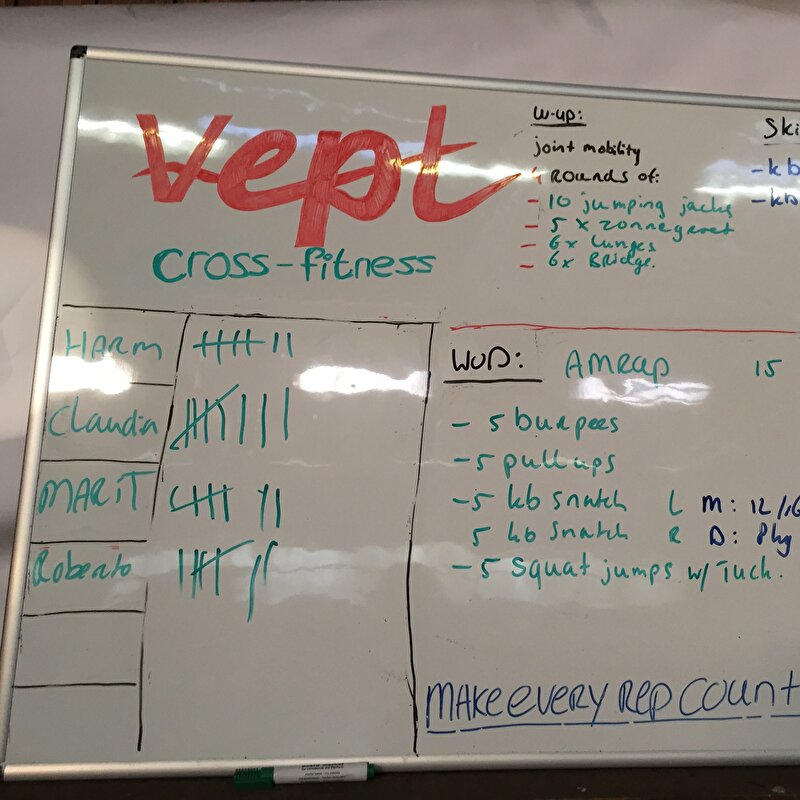 vept
cross-fitness
W-up:
joint mobility
4 Rounds of:
- 10 jumping jacks
- 5 x zonnegroet
- 6x Lunges
- 6x Bridge.
Ski
- kb
- kb
HARM
Claudia
MARIT
Roberto
WOD: AMRAP 15
- 5 burpees
- 5 pullups
- 5 kb snatch L M: 12/16
5 kb snatch R D: 8kg
- 5 squat jumps w/ Tuck.
MAKE EVERY REP COUNT